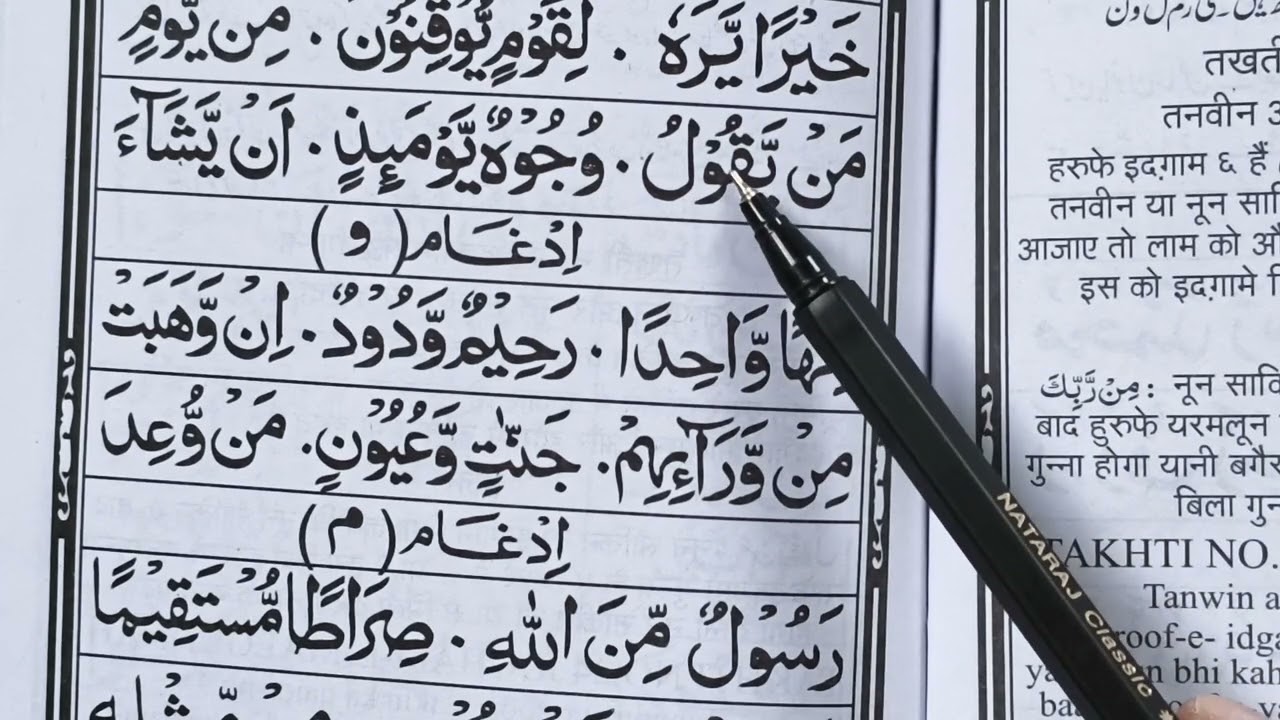 خَيْرًا يَّرَهٗ . لِقَوْمٍ يُّوْقِنُوْنَ . مِنْ يَّوْمٍ
مَنْ يَّقُوْلُ . وُجُوْهٌ يَّوْمَئِذٍ . اَنْ يَّشَآءَ
اِدْغَام (و)
وَّاحِدًا . رَحِيْمٌ وَّدُوْدٌ . اِنْ وَّهَبَتْ
مِنْ وَّرَآءِهِمْ . جَنّٰتٍ وَّعُيُوْنٍ . مَنْ وُّعِدَ
اِدْغَام (م)
رَسُوْلٌ مِّنَ اللهِ . صِرَاطًا مُّسْتَقِيْمًا
तखती
तनवीन
हरुफे इदग़ाम ६ हैं
तनवीन या नून
आजाए तो लाम को
इस को इदग़ामे
مِنْ رَّبِّكَ : नून
बाद हुरुफे यरमलून
गुन्ना होगा यानी
बिला
TAKHTI NO.
Tanwin
idga
bhi kah
NATARAJ Classic